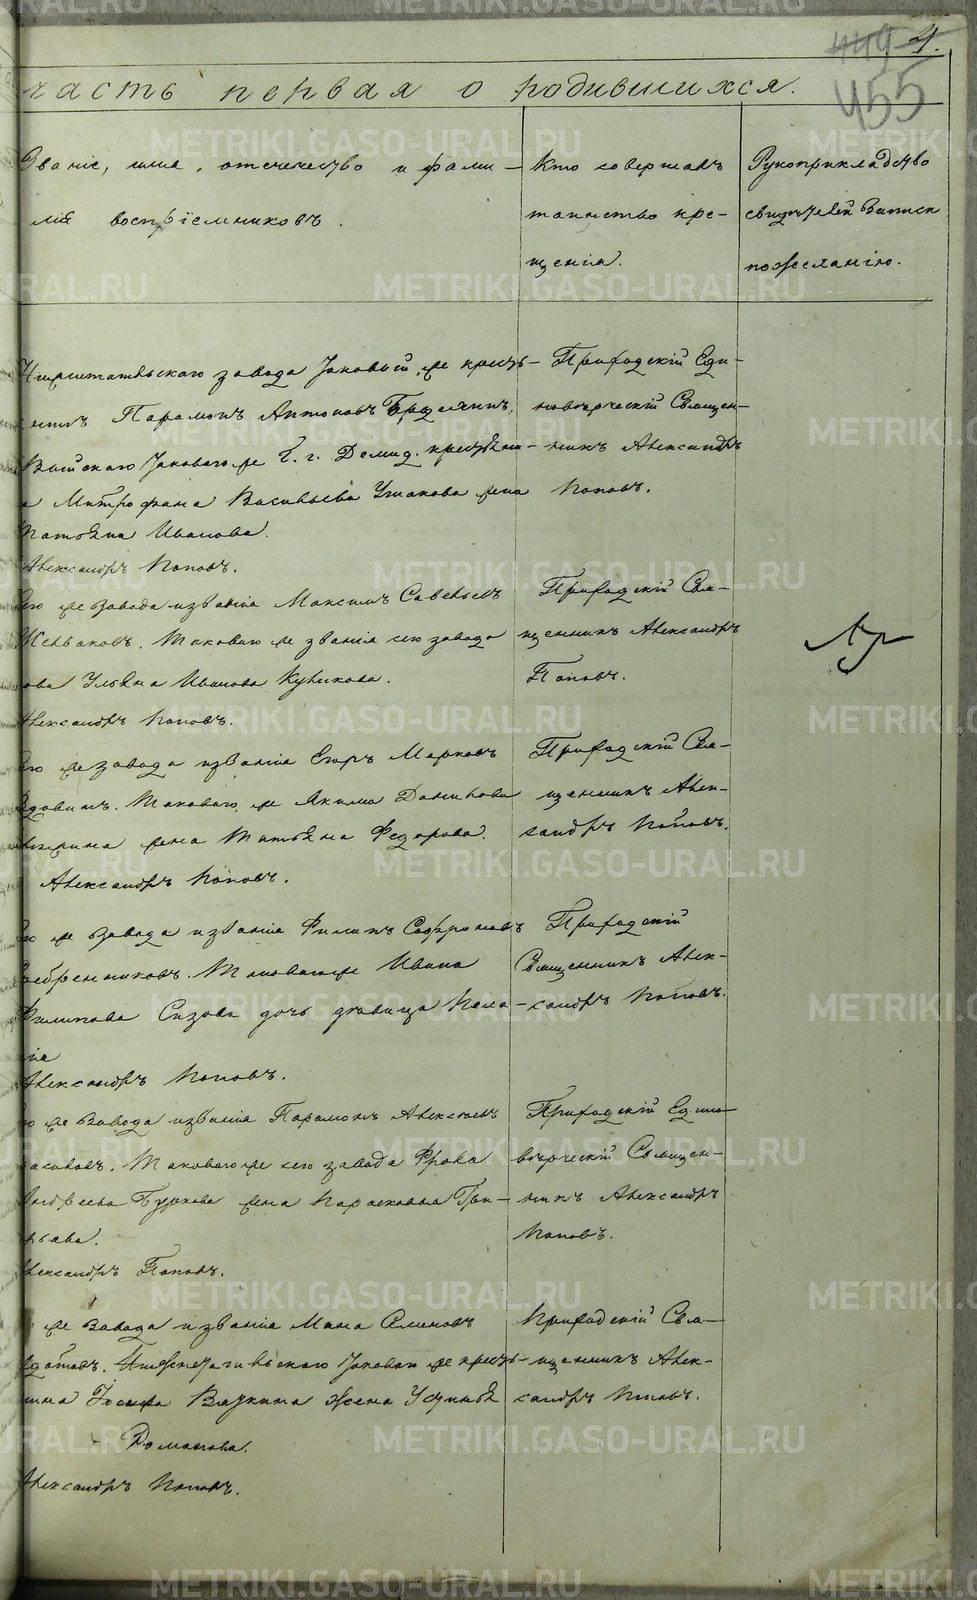 449 4.
455
часть первая о родившихся.
Званіе, имя, отечество и фами-
лія воспріемниковъ.
Кто совершавъ
таинство кре-
щенія.
Рукоприкладство
свидѣтелей Записи
по желанію.
завода же крестъ-
Парамонъ Антоновъ
же Демид. крестьяни-
а Митрофана Васильева Ушакова жена
Татьяна Иванова.
Александръ Поповъ.
Приходскій Еди-
новѣрческій Священ-
никъ Александръ
Поповъ.
го же завода и званія Максимъ Савельевъ
Таковаго же званія сего завода
Ульяна Иванова Куликова.
Александръ Поповъ.
Приходскій Свя-
щенникъ Александръ
Поповъ.
го же завода и званія Егоръ Марковъ
Вдовинъ. Таковаго же Якима Данилова
жена Татьяна Федорова.
Александръ Поповъ.
Приходскій Свя-
щенникъ Алек-
сандръ Поповъ.
го же завода и званія Филипъ Софроновъ
Серебренниковъ. Таковаго же Ивана
Филипова Сизова дочь дѣвица Пела-
гіе
Александръ Поповъ.
Приходскій
Священникъ Алек-
сандръ Поповъ.
го же завода и званія Парамонъ Алексѣевъ
Таковаго же сего завода Фрола
Андреева Буркова жена Парасковья Гри-
рьева.
Александръ Поповъ.
Приходскій Едино-
вѣрческій Священ-
никъ Александръ
Поповъ.
го же завода и званія
же крестъ-
янина Іосифа Вяткина жена Устинья
Доманова.
Александръ Поповъ.
Приходскій Свя-
щенникъ Алек-
сандръ Поповъ.
METRIKI.GASO-URAL.RU